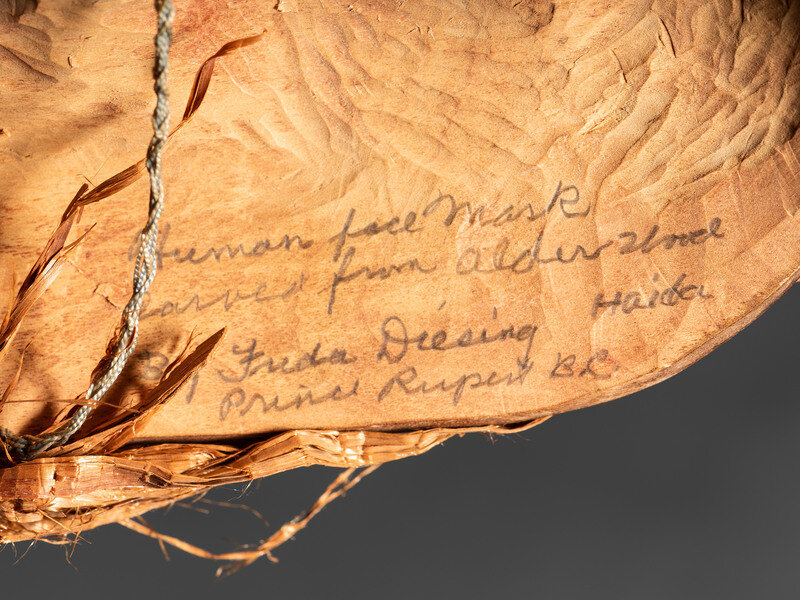 Human face Mask
carved from alder wood
Haida
By Freda Diesing
Prince Rupert B.C.